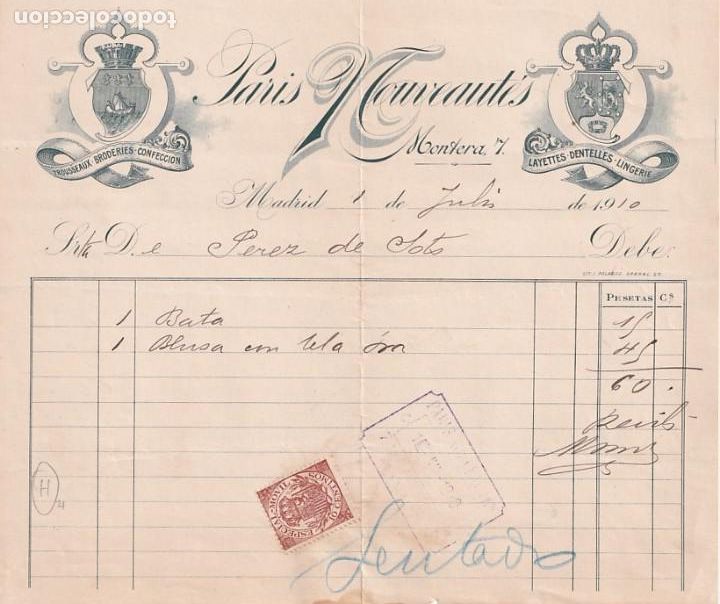 todocoleccion
todocoleccion.net
Paris Nouveautés
TROUSSEAUX-BRODERIES-CONFECCION
Montera, 7.
LAYETTES-DENTELLES-LINGERIE
Madrid 1 de Julio de 1910
Srta D. e Perez de Soto Debe:
PESETAS Cs
1 Bata 15
1 Blusa con tela 45
60.
Recibi
ESPECIAL MOVIL
10 CENTIMOS
H
Sentado